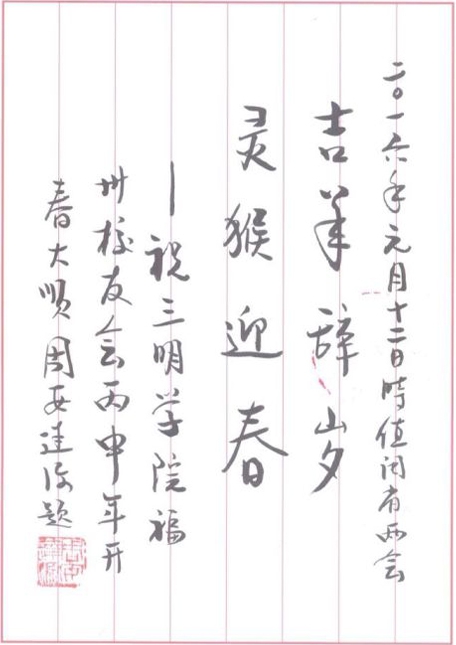 二〇一六年元月十二日時值闽省两会
吉羊辞岁
灵猴迎春
—祝三明学院福
州校友会丙申年开
春大顺周安達源题